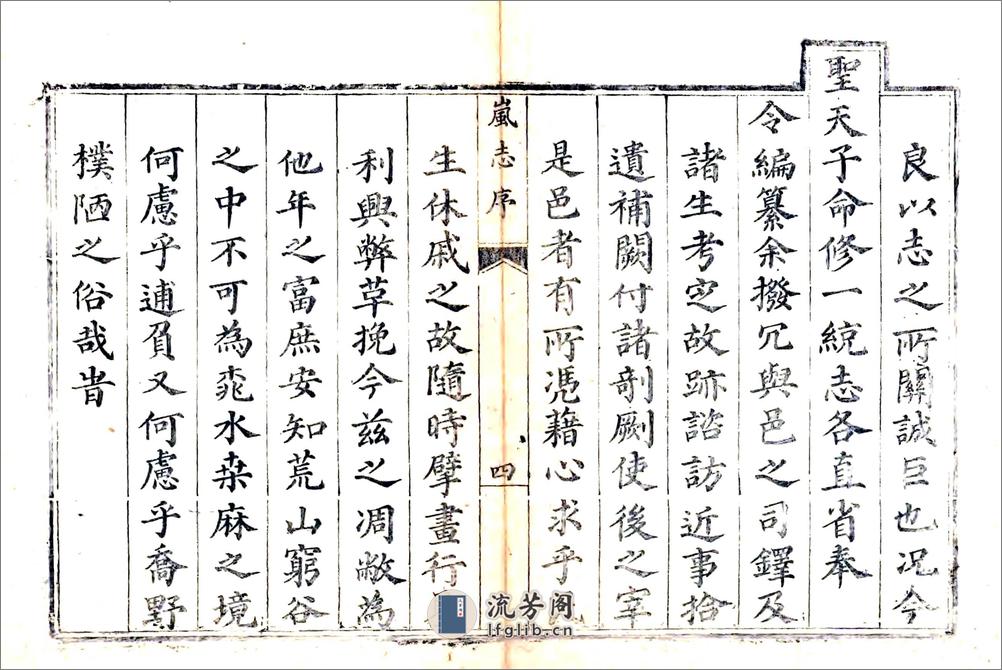 良以志之所關誠巨也况今
聖天子命修一統志各直省奉
令編纂余撥冗與邑之司鐸及
諸生考定故跡諮訪近事拾
遺補闕付諸剞劂使後之宰
是邑者有所憑藉心求乎
嵐志序
四
生休戚之故隨時擘畫行
利興弊革挽今茲之凋敝為
他年之富庶安知荒山窮谷
之中不可為桃水桒麻之境
何慮乎逋負又何慮乎喬野
樸陋之俗哉旹
流芳阁
lfglib.cn